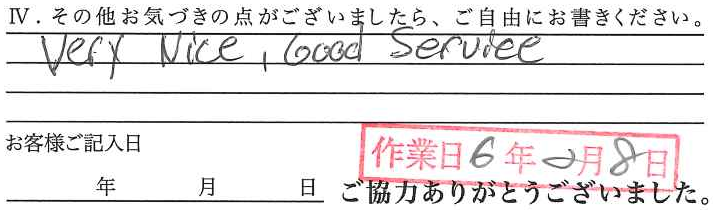 Ⅳ．その他お気づきの点がございましたら、ご自由にお書きください。
Very Nice, Good Service
お客様ご記入日
作業日 6年2月8日
年 月 日
ご協力ありがとうございました。